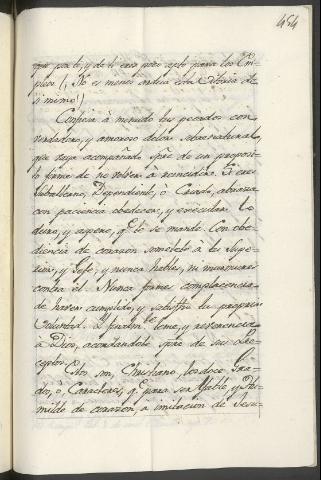 454
que para ti, y de ti eres poco apto para los Em-
pleos (¡ No es menos ardua esta Victoria de
si mismo!)
Confiesa à menudo tus pecados con
verdadero, y amoroso dolor sobrenatural,
que vaya acompañado spre de un proposi-
to firme de no volver à reincidir. Si eres
Subalterno, Dependiente, ò Criado, abraza
con paciencia obedecer, y executar lo
duro, y aspero, q.e te se mande. Con obe-
diencia de corazon sometete à tu Supe-
rior, y Jefe, y nunca hables, ni murmures
contra èl. Nunca formes complacencia
de haver cumplido, y satisfho tu propria
Voluntad. Y finalm.te teme, y reverencia
à Dios, acordandote spre de sus Pre-
ceptos.
Estos son, Christiano, los doce Gra-
dos, ò Caracteres, q.e para ser Afable, y Hu-
milde de corazon, a imitacion de Jesu-